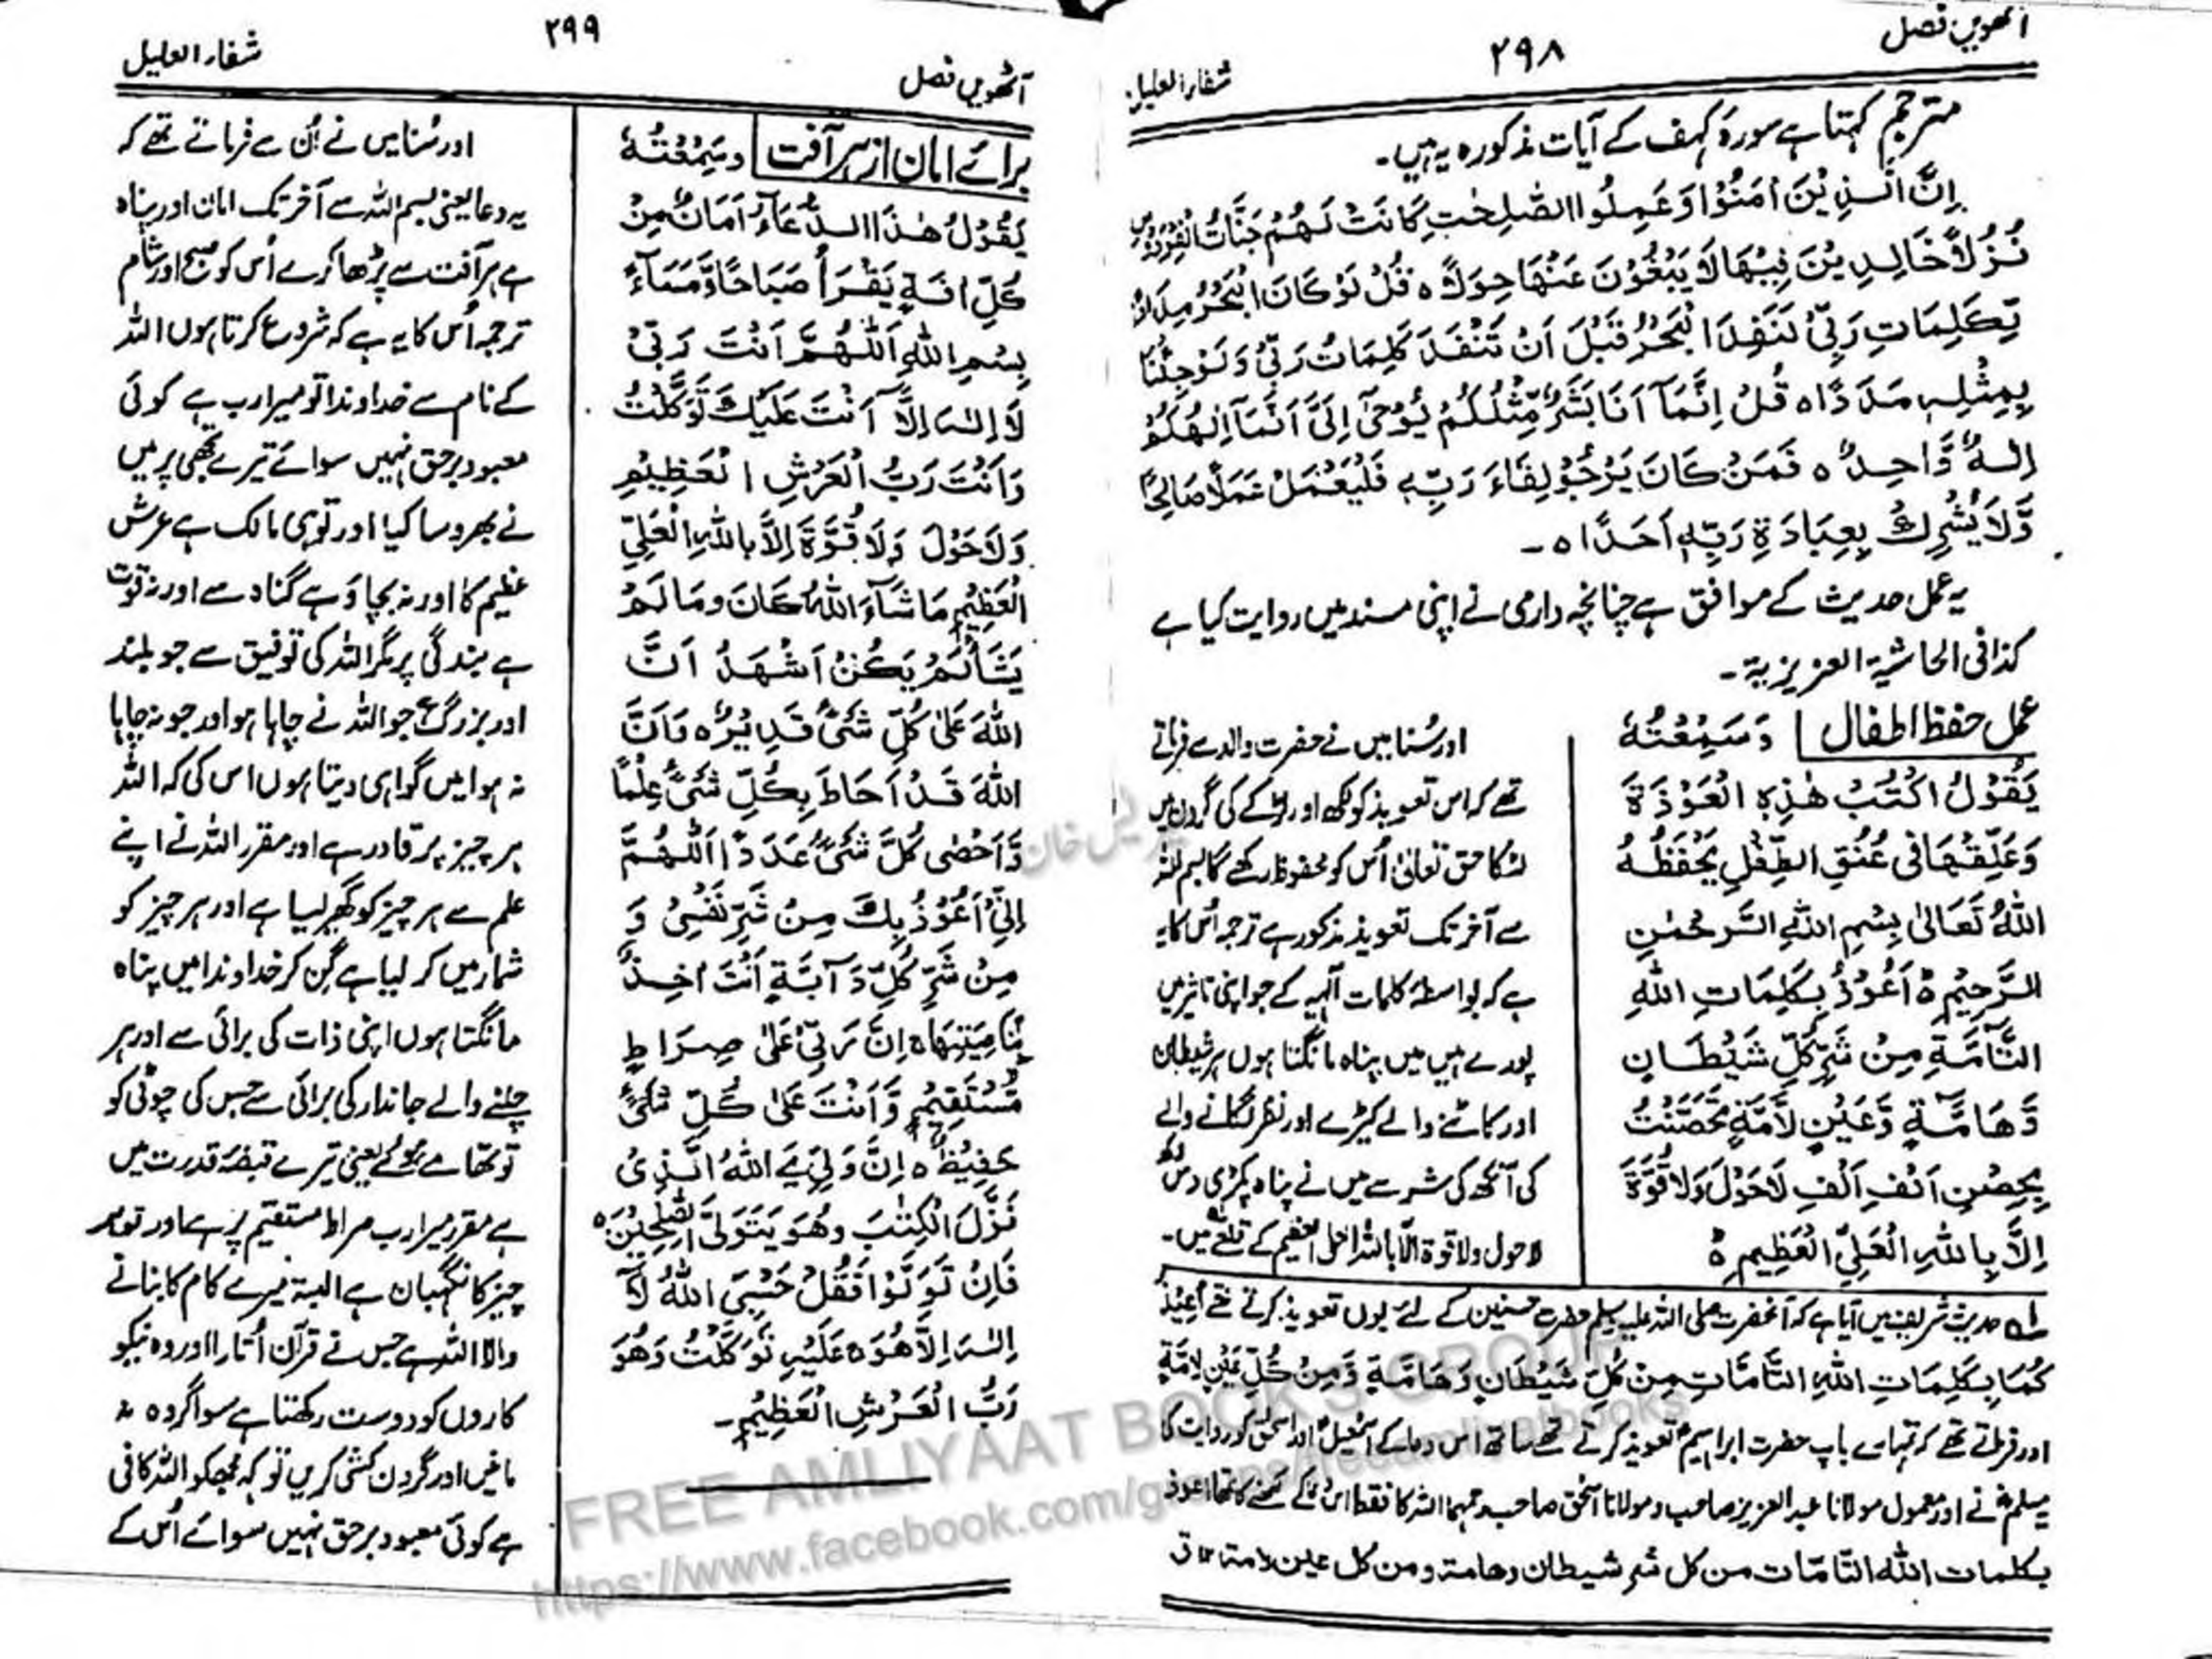 آٹھویں فصل
۲۹۸
شفاء العلیل
مترجم کہتا ہے سورۂ کہف کے آیات مذکورہ یہ ہیں۔
اِنَّ الَّذِیْنَ اٰمَنُوْا وَعَمِلُوا الصّٰلِحٰتِ کَانَتْ لَهُمْ جَنَّاتُ الْفِرْدَوْسِ
نُزُلًا خَالِدِیْنَ فِیْهَا لَا یَبْغُوْنَ عَنْهَا حِوَلًا ہ قُلْ لَوْ کَانَ الْبَحْرُ مِدَادًا
لِّکَلِمَاتِ رَبِّیْ لَنَفِدَ الْبَحْرُ قَبْلَ اَنْ تَنْفَدَ کَلِمَاتُ رَبِّیْ وَلَوْ جِئْنَا
بِمِثْلِهٖ مَدَدًا ہ قُلْ اِنَّمَآ اَنَا بَشَرٌ مِّثْلُکُمْ یُوْحٰٓی اِلَیَّ اَنَّمَآ اِلٰهُکُمْ
اِلٰهٌ وَّاحِدٌ ہ فَمَنْ کَانَ یَرْجُوْ لِقَاءَ رَبِّهٖ فَلْیَعْمَلْ عَمَلًا صَالِحًا
وَّلَا یُشْرِكْ بِعِبَادَةِ رَبِّهٖ اَحَدًا ہ ۔
یہ عمل حدیث کے موافق ہے چنانچہ دارمی نے اپنی مسند میں روایت کیا ہے
کذا فی الحاشیۃ العزیزیۃ ۔
عمل حفظ اطفال وَسَمِعْتُهٗ
یَقُوْلُ اکْتُبْ هٰذِهِ الْعَوْذَةَ
وَعَلِّقْهَا فِیْ عُنُقِ الطِّفْلِ یَحْفَظْهُ
اللّٰهُ تَعَالٰی بِسْمِ اللّٰهِ الرَّحْمٰنِ
الرَّحِیْمِ ہ اَعُوْذُ بِکَلِمَاتِ اللّٰهِ
التَّآمَّةِ مِنْ شَرِّ کُلِّ شَیْطَانٍ
وَّهَامَّةٍ وَّعَیْنٍ لَّامَّةٍ تَحَصَّنْتُ
بِحِصْنِ اَلْفِ اَلْفِ لَا حَوْلَ وَلَا قُوَّةَ
اِلَّا بِاللّٰهِ الْعَلِیِّ الْعَظِیْمِ ہ
اور سُنا میں نے حضرت والد سے فرماتے
تھے کہ اس تعویذ کو لکھ اور لڑکے کی گردن میں
لٹکا حق تعالیٰ اُس کو محفوظ رکھے گا بسم اللہ
سے آخر تک تعویذ مذکور ہے ترجمہ اُس کا یہ
ہے کہ بواسطۂ کلمات الٰہیہ کے جو اپنی تاثیر میں
پورے ہیں میں پناہ مانگتا ہوں ہر شیطان
اور کاٹنے والے کیڑے اور نظر لگانے والے
کی آنکھ کی شر سے میں نے پناہ پکڑی دس لاکھ
لاحول ولا قوۃ الا باللہ العلی العظیم کے قلعے میں۔
حدیث شریف میں آیا ہے کہ آنحضرت صلی اللہ علیہ وسلم حضرت حسنین کے لئے یوں تعویذ کرتے تھے اُعِیْذُ
کُمَا بِکَلِمَاتِ اللّٰهِ التَّآمَّاتِ مِنْ کُلِّ شَیْطَانٍ وَّهَامَّةٍ وَّمِنْ کُلِّ عَیْنٍ لَامَّةٍ
اور فرماتے تھے کہ تمہارے باپ حضرت ابراہیم تعویذ کرتے تھے ساتھ اس دعا کے اسمٰعیل اور اسحٰق کو روایت کیا
مسلم نے اور معمول مولانا عبدالعزیز صاحب و مولانا اسحٰق صاحب رحمہما اللہ کا فقط اس کے لکھنے کا تھا اعوذ
بکلمات اللہ التامّات من کل شر شیطان وھامۃ ومن کل عین لامۃ
آٹھویں فصل
۲۹۹
شفاء العلیل
برائے امان از ہر آفت وَسَمِعْتُهٗ
یَقُوْلُ هٰذَا الدُّعَآءُ اَمَانٌ مِنْ
کُلِّ اٰفَةٍ یَقْرَأُ صَبَاحًا وَّمَسَآءً
بِسْمِ اللّٰهِ اَللّٰهُمَّ اَنْتَ رَبِّیْ
لَآ اِلٰهَ اِلَّآ اَنْتَ عَلَیْكَ تَوَکَّلْتُ
وَاَنْتَ رَبُّ الْعَرْشِ الْعَظِیْمِ
وَلَا حَوْلَ وَلَا قُوَّةَ اِلَّا بِاللّٰهِ الْعَلِیِّ
الْعَظِیْمِ مَا شَآءَ اللّٰهُ کَانَ وَمَا لَمْ
یَشَأْ لَمْ یَکُنْ اَشْهَدُ اَنَّ
اللّٰهَ عَلٰی کُلِّ شَیْءٍ قَدِیْرٌ ہ وَاَنَّ
اللّٰهَ قَدْ اَحَاطَ بِکُلِّ شَیْءٍ عِلْمًا
وَّاَحْصٰی کُلَّ شَیْءٍ عَدَدًا اَللّٰهُمَّ
اِنِّیْ اَعُوْذُ بِكَ مِنْ شَرِّ نَفْسِیْ وَ
مِنْ شَرِّ کُلِّ دَآبَّةٍ اَنْتَ اٰخِذٌ
بِنَاصِیَتِهَا ہ اِنَّ رَبِّیْ عَلٰی صِرَاطٍ
مُّسْتَقِیْمٍ وَّاَنْتَ عَلٰی کُلِّ شَیْءٍ
حَفِیْظٌ ہ اِنَّ وَلِیِّ یَ اللّٰهُ الَّذِیْ
نَزَّلَ الْکِتٰبَ وَهُوَ یَتَوَلَّی الصّٰلِحِیْنَ ہ
فَاِنْ تَوَلَّوْا فَقُلْ حَسْبِیَ اللّٰهُ لَآ
اِلٰهَ اِلَّا هُوَ ہ عَلَیْهِ تَوَکَّلْتُ وَهُوَ
رَبُّ الْعَرْشِ الْعَظِیْمِ ۔
اور سُنا میں نے اُن سے فرماتے تھے کہ
یہ دعا یعنی بسم اللہ سے آخر تک امان اور پناہ
ہے ہر آفت سے پڑھا کرے اُس کو صبح اور شام
ترجمہ اُس کا یہ ہے کہ شروع کرتا ہوں اللہ
کے نام سے خداوندا تو میرا رب ہے کوئی
معبود برحق نہیں سوائے تیرے تجھی پر میں
نے بھروسا کیا اور تو ہی مالک ہے عرش
عظیم کا اور نہ بچاؤ ہے گناہ سے اور نہ قوت
ہے بندگی پر مگر اللہ کی توفیق سے جو بلند
اور بزرگ ہے جو اللہ نے چاہا ہوا اور جو نہ چاہا
نہ ہوا میں گواہی دیتا ہوں اس کی کہ اللہ
ہر چیز پر قادر ہے اور مقرر اللہ نے اپنے
علم سے ہر چیز کو گھیر لیا ہے اور ہر چیز کو
شمار میں کر لیا ہے گن کر خداوندا میں پناہ
مانگتا ہوں اپنی ذات کی برائی سے اور ہر
چلنے والے جاندار کی برائی سے جس کی چوٹی کو
تو تھامے ہوئے یعنی تیرے قبضۂ قدرت میں
ہے مقرر میرا رب صراط مستقیم پر ہے اور تو ہر
چیز کا نگہبان ہے البتہ میرے کام کا بنانے
والا اللہ ہے جس نے قرآن اُتارا اور وہ نیکو
کاروں کو دوست رکھتا ہے سو اگر وہ نہ
مانیں اور گردن کشی کریں تو کہہ مجھکو اللہ کافی
ہے کوئی معبود برحق نہیں سوائے اُس کے
FREE AMLIYAAT BOOKS GROUP
https://www.facebook.com/groups/freeamliyatbooks